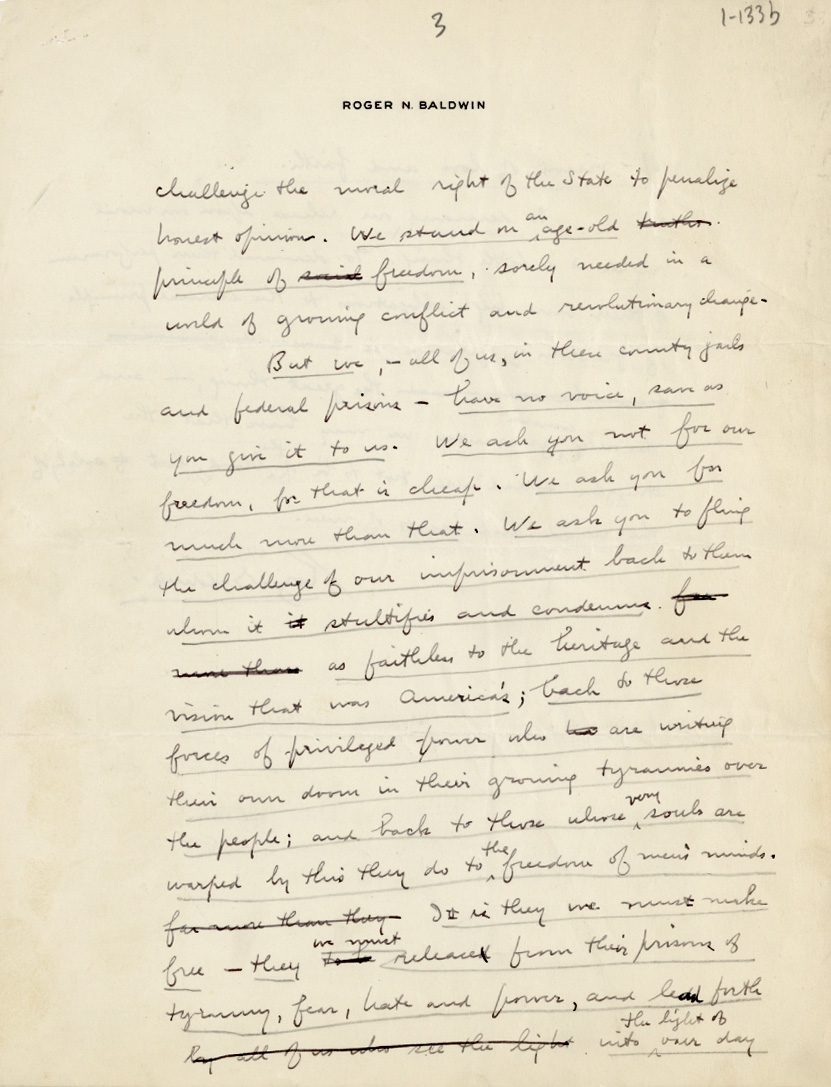 3
1-133b
ROGER N. BALDWIN
challenge the moral right of the State to penalize
honest opinion. We stand on an age-old truths.
principle of said freedom, sorely needed in a
world of growing conflict and revolutionary change-
But we, - all of us, in these county jails
and federal prisons - have no voice, save as
you give it to us. We ask you not for our
freedom, for that is cheap. We ask you for
much more than that. We ask you to fling
the challenge of our imprisonment back to them
whom it it stultifies and condemns. far
more than as faithless to the heritage and the
vision that was America's; back to those
forces of privileged power who are writing
their own doom in their growing tyrannies over
the people; and back to those whose very souls are
warped by this they do to the freedom of men's minds.
far more than they It is they we must make
free - they we must to be release from their prisons of
tyranny, fear, hate and power, and lead forth
by all of us who see the light into the light of our day